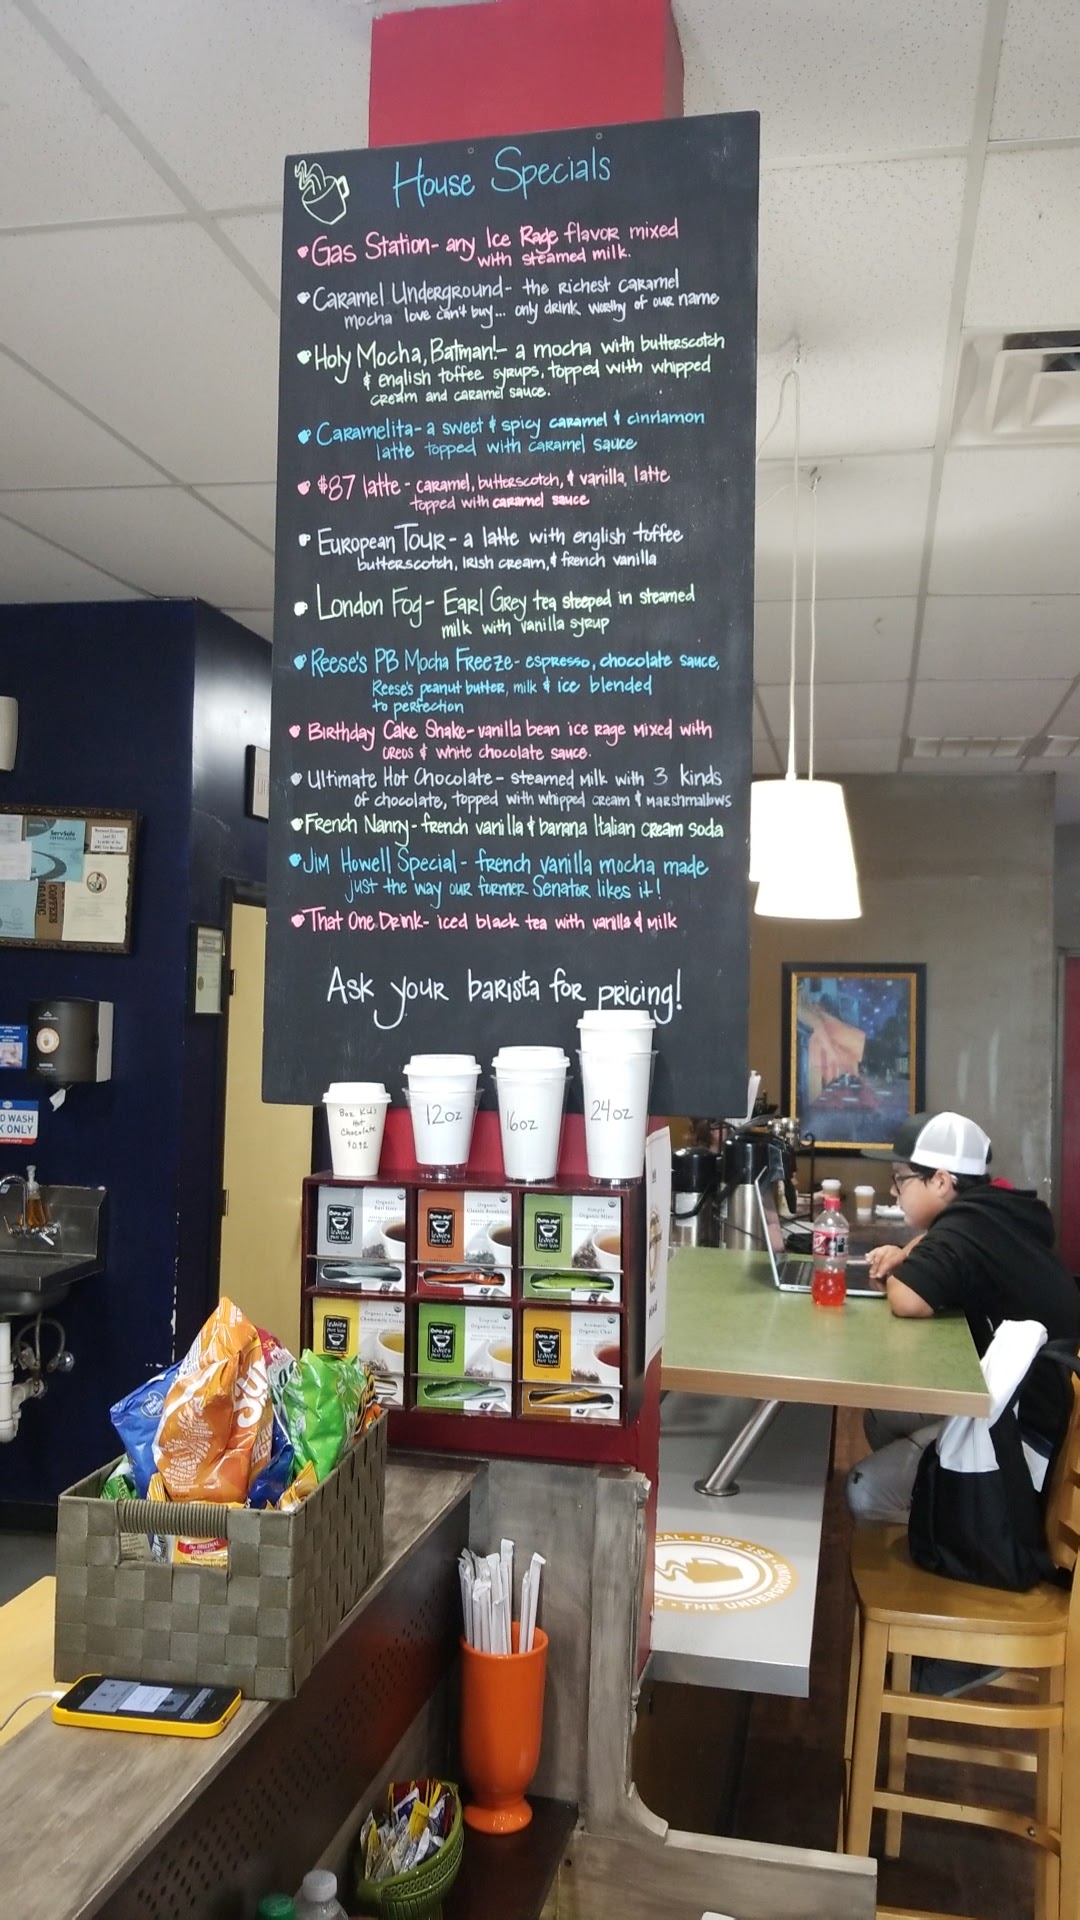 House Specials
Gas Station- any Ice Rage flavor mixed
with steamed milk.
Caramel Underground- the richest caramel
mocha love can't buy... only drink worthy of our name
Holy Mocha, Batman!- a mocha with butterscotch
& english toffee syrups, topped with whipped
cream and caramel sauce.
Caramelita- a sweet & spicy caramel & cinnamon
latte topped with caramel sauce
$87 latte- caramel, butterscotch, & vanilla latte
topped with caramel sauce
European Tour- a latte with english toffee
butterscotch, Irish cream, & french vanilla
London Fog- Earl Grey tea steeped in steamed
milk with vanilla syrup
Reese's PB Mocha Freeze- espresso, chocolate sauce,
Reese's peanut butter, milk & ice blended
to perfection
Birthday Cake Shake- vanilla bean ice Rage mixed with
oreos & white chocolate sauce.
Ultimate Hot Chocolate- steamed milk with 3 kinds
of chocolate, topped with whipped cream & marshmallows
French Nanny- french vanilla & banana Italian cream soda
Jim Howell Special- french vanilla mocha made
just the way our former Senator likes it!
That One Drink- iced black tea with vanilla & milk
Ask your barista for pricing!
8oz Kid's
Hot
Chocolate
$0.92
12oz
16oz
24oz
Organic
Earl Grey
Organic
Classic Breakfast
Simply
Organic Mint
Organic Sweet
Chamomile Citrus
Tropical
Organic Green
Aromatic
Organic Chai
leaves
pure teas
ServSafe
CERTIFICATION
ORGANIC
COFFEES
D WASH
K ONLY
Sun
CAL • EST. 2008 • THE UNDERGROUND